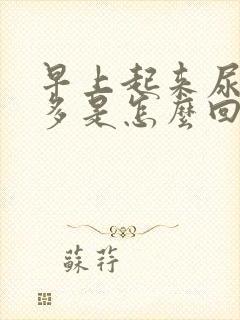 早上起来尿
多是怎麼回
蘇荇